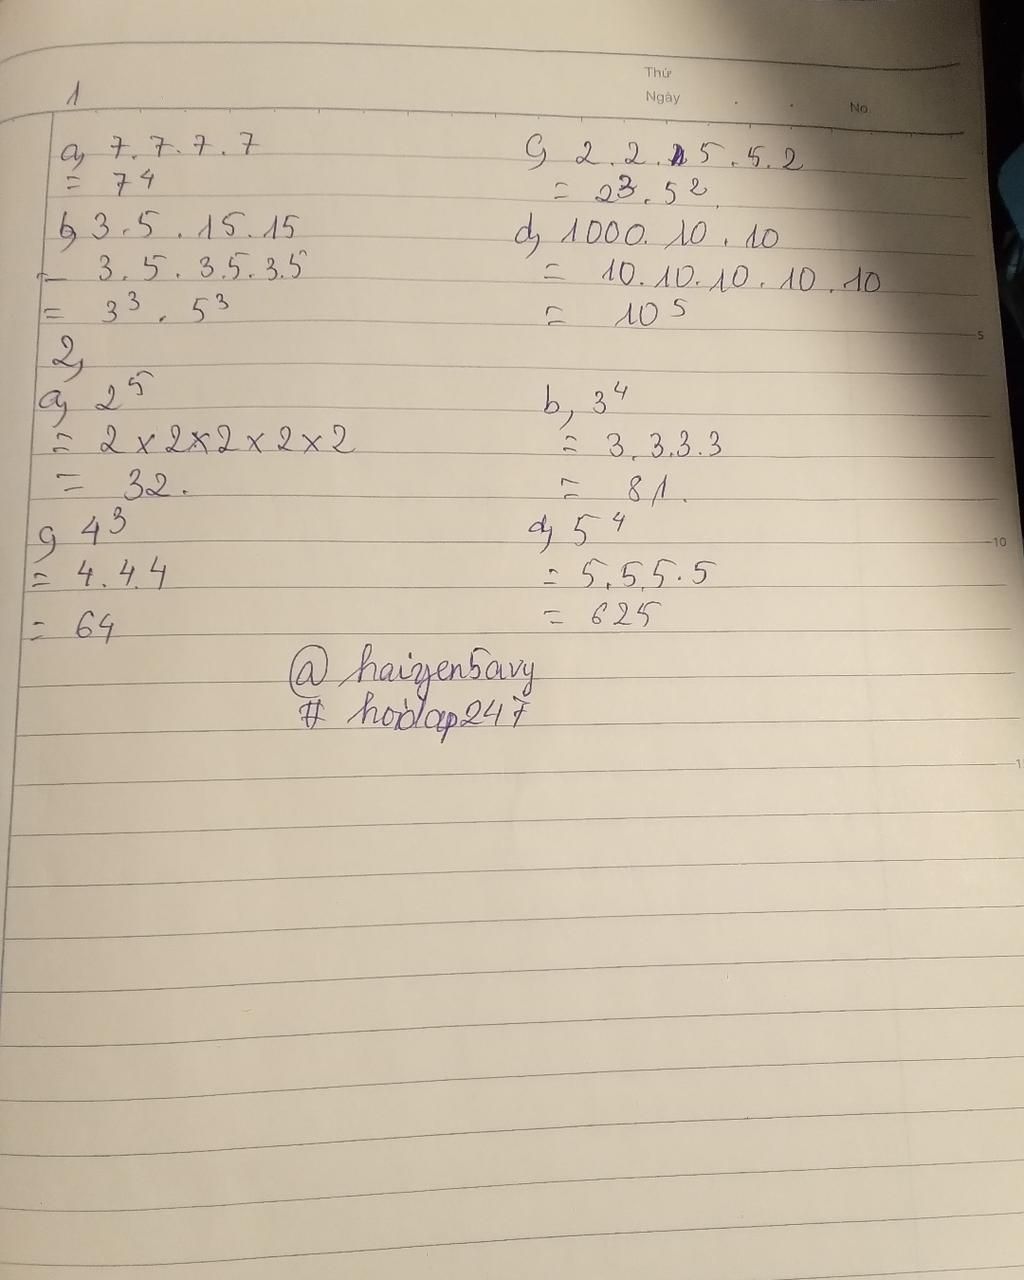 Thứ
Ngày
No
1
a, 7.7.7.7
= 7⁴
b, 3.5.15.15
= 3.5.3.5.3.5
= 3³.5³
c, 2.2.5.5.2
= 2³.5².
d, 1000.10.10
= 10.10.10.10.10
= 10⁵
5
2,
a, 2⁵
= 2×2×2×2×2
= 32.
b, 3⁴
= 3.3.3.3
= 81.
c, 4³
= 4.4.4
= 64
d, 5⁴
= 5.5.5.5
= 625
10
@haiyen5avy
#hoidap247